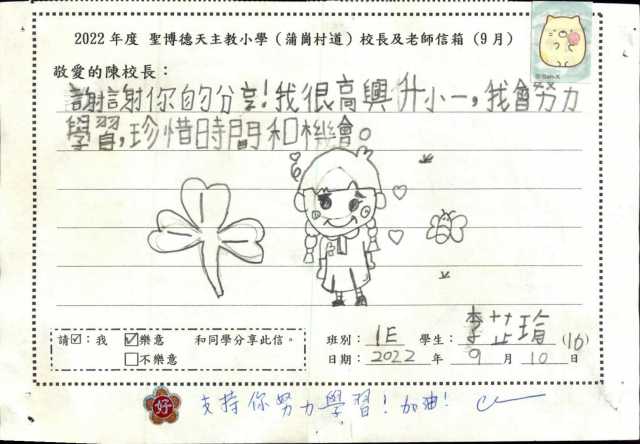 2022 年度 聖博德天主教小學（蒲崗村道）校長及老師信箱（9 月）
敬愛的陳校長：
謝謝你的分享!我很高興升小一，我會努力
學習，珍惜時間和機會。
請☑：我 ☑樂意 和同學分享此信。
□不樂意
班別： 1E 學生： 李芷瑜 (16)
日期： 2022 年 9 月 10 日
好 支持你努力學習! 加油!